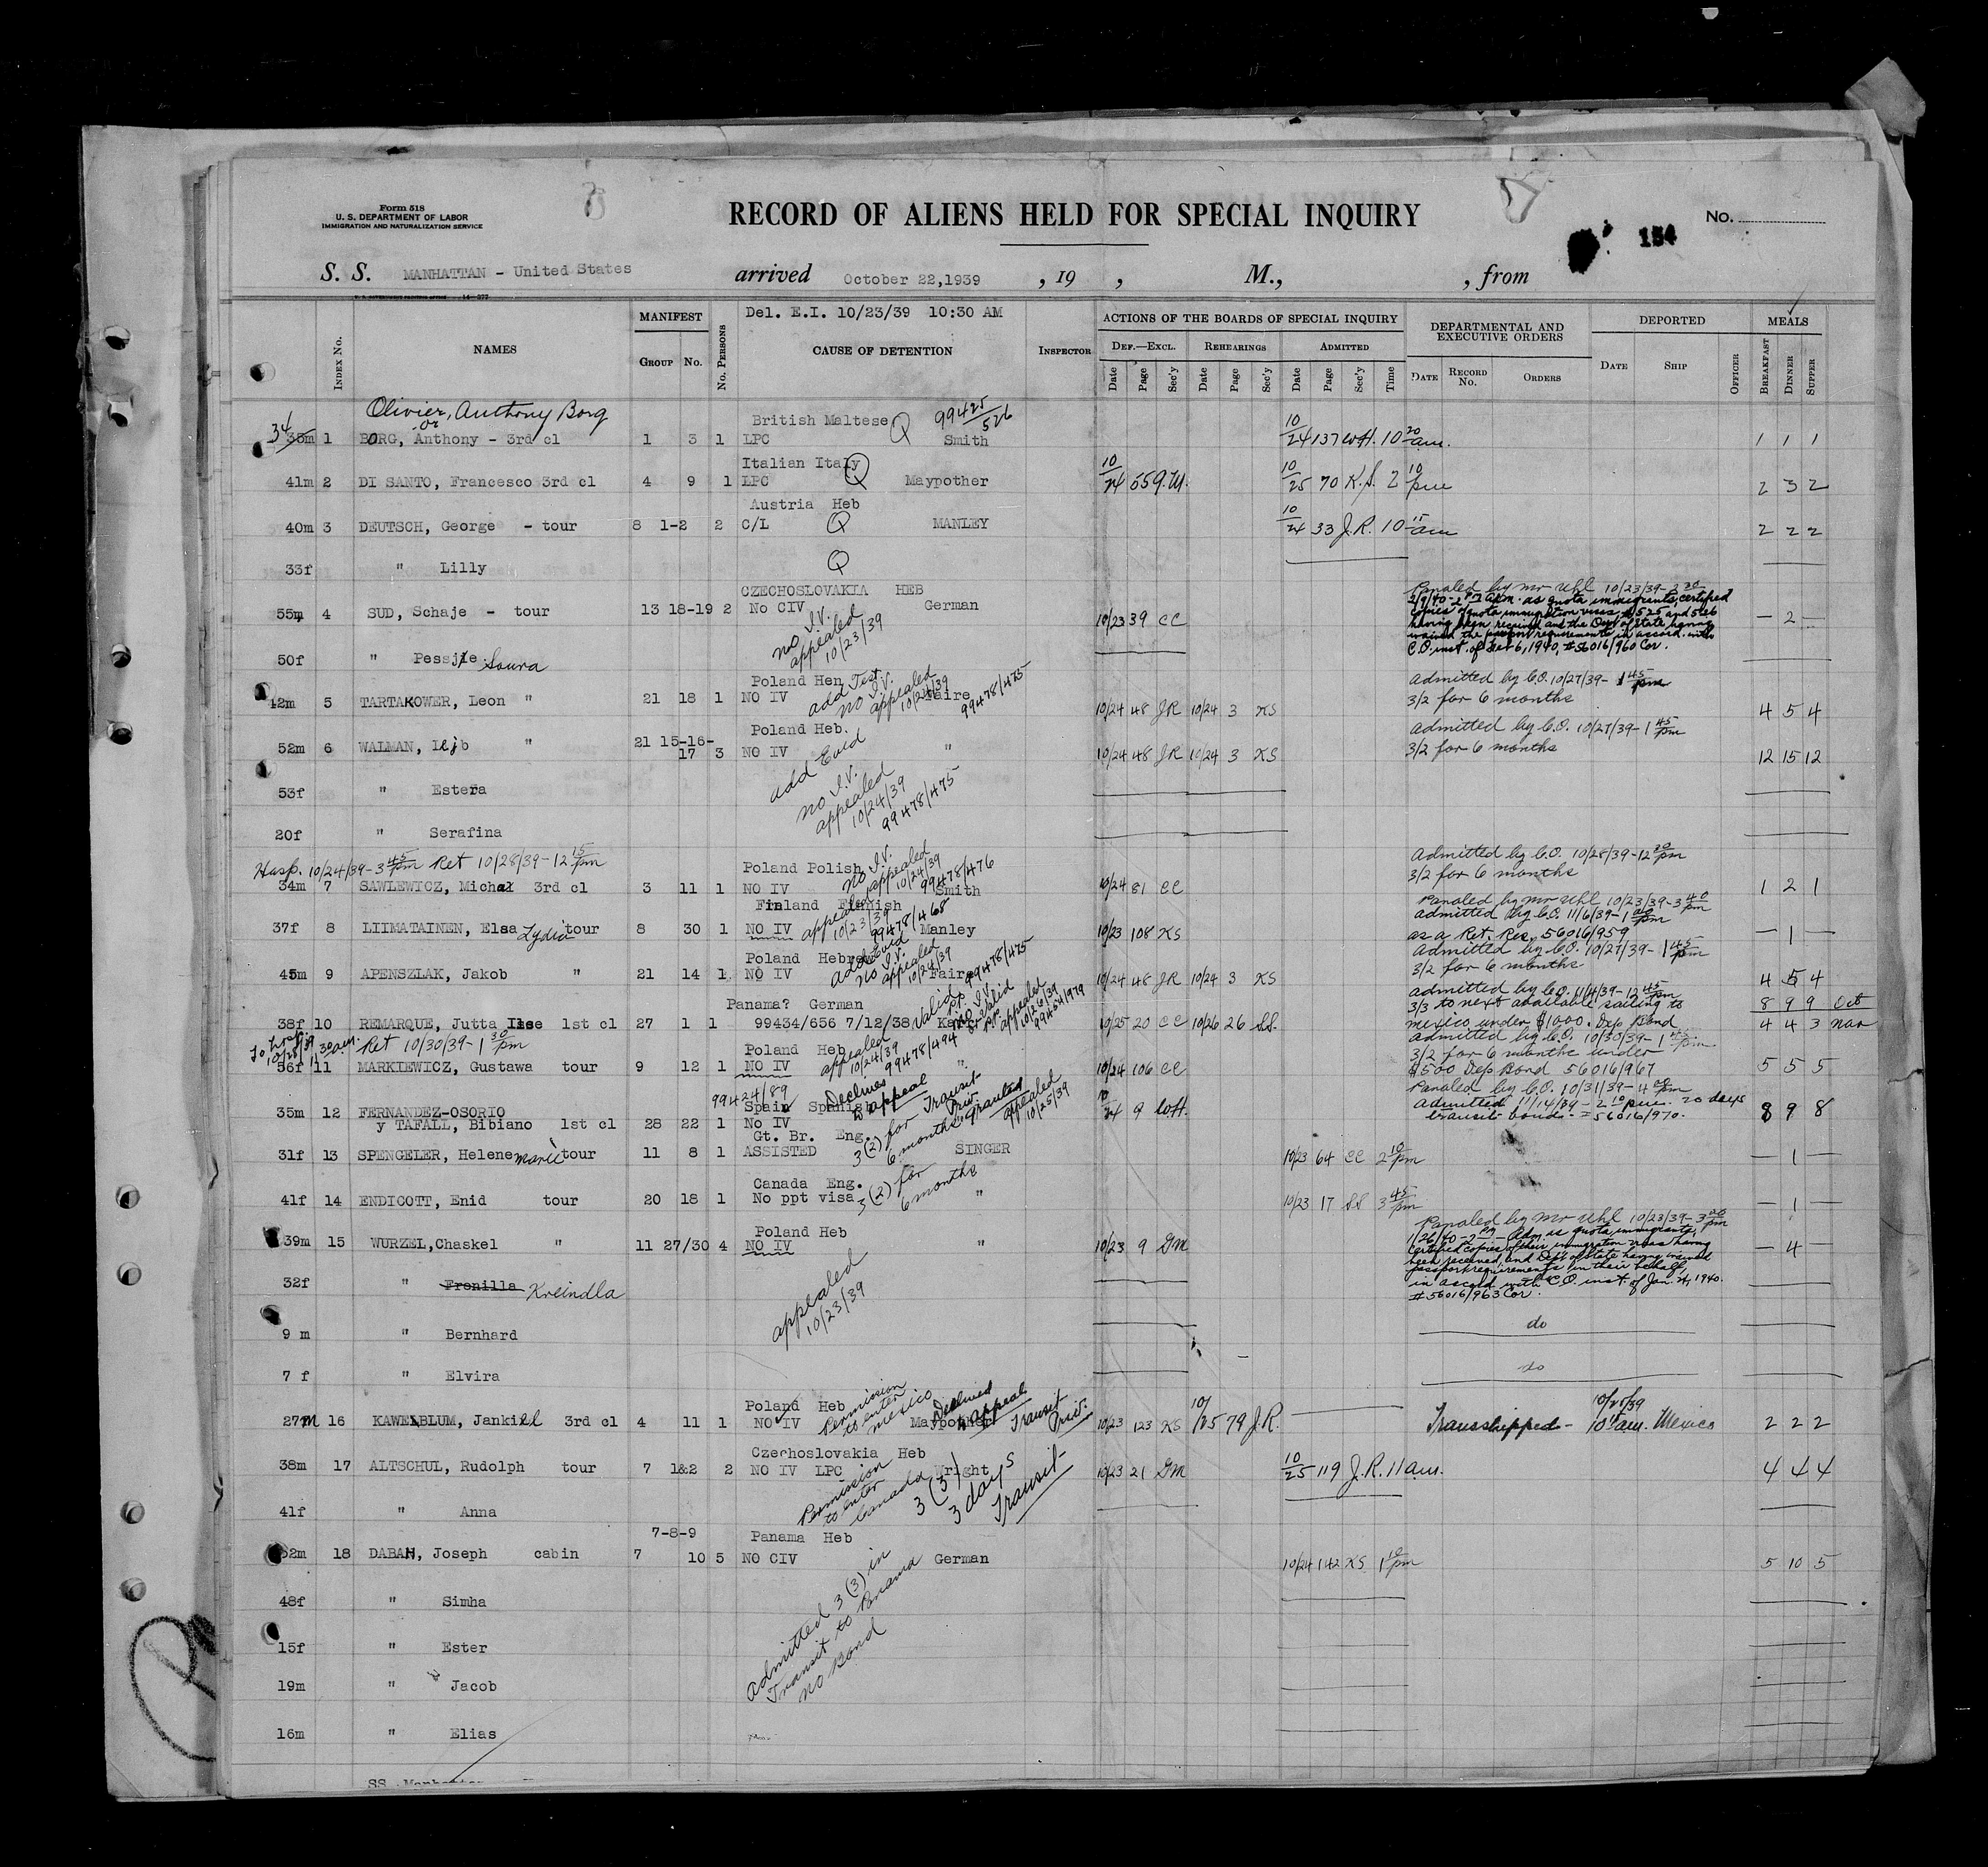 Form 518
U. S. DEPARTMENT OF LABOR
IMMIGRATION AND NATURALIZATION SERVICE
RECORD OF ALIENS HELD FOR SPECIAL INQUIRY
No.
154
S. S. MANHATTAN - United States arrived October 22,1939 , 19 , M., , from
Del. E.I. 10/23/39 10:30 AM
MANIFEST ACTIONS OF THE BOARDS OF SPECIAL INQUIRY DEPARTMENTAL AND EXECUTIVE ORDERS DEPORTED MEALS
Index No. NAMES Group No. No. Persons CAUSE OF DETENTION Inspector Def.—Excl. Rehearings Admitted
Date Page Sec'y Date Page Sec'y Date Page Sec'y Time Date Record No. Orders Date Ship Officer Breakfast Dinner Supper
Olivier, Anthony Borg
or
British Maltese Q 99425/526
34 35m 1 BORG, Anthony - 3rd cl 1 3 1 LPC Smith 10/24 137 WH. 10 20 am. 1 1 1
Italian Italy
41m 2 DI SANTO, Francesco 3rd cl 4 9 1 LPC Q Maypother 10/24 55 G.M. 10/25 70 K.S. 2 10 pm 2 3 2
Austria Heb
40m 3 DEUTSCH, George - tour 8 1-2 2 C/L Q MANLEY 10/24 33 J.R. 10 15 am 2 2 2
33f " Lilly Q
CZECHOSLOVAKIA HEB
Paroled by Mr Uhl 10/23/39-2 30
55m 4 SUD, Schaje - tour 13 18-19 2 No CIV German 10/23 39 CC — 2 —
Adm. as quota immigrants, certified
copies of quota immigration visas # 525 and 526
having been received and the Dept of State having
waived the passport requirements in accord. with
C.O. inst. of Feb 6, 1940, #56016/960 Cor.
no I.V.
appealed
10/23/39
50f " Pessjle Soura
Poland Hen add Test. no I.V. appealed 10/24/39 99478/475
Admitted by C.O. 10/27/39- 1 45 pm
42m 5 TARTAKOWER, Leon " 21 18 1 NO IV Faire 10/24 48 JR 10/24 3 KS 3/2 for 6 months 4 5 4
Poland Heb.
Admitted by C.O. 10/27/39-1 45 pm
52m 6 WALMAN, Lejb " 21 15-16-17 3 NO IV " 10/24 48 JR 10/24 3 KS 3/2 for 6 months 12 15 12
add Evid
no I.V.
appealed
10/24/39
99478/475
53f " Estera
20f " Serafina
Hosp. 10/24/39-3 45 pm Ret 10/28/39-12 15 pm
Poland Polish no I.V. appealed 10/24/39 99478/476
Admitted by C.O. 10/28/39-12 30 pm
3/2 for 6 months
34m 7 SAWLEWICZ, Michal 3rd cl 3 11 1 NO IV Smith 10/24 81 CC 1 2 1
Finland Finnish appealed 10/23/39 99478/468
Paroled by Mr Uhl 10/23/39-3 40 pm
admitted by C.O. 11/6/39-1 00 pm
37f 8 LIIMATAINEN, Elsa Lydia tour 8 30 1 NO IV Manley 10/23 108 KS as a Ret. Res. 56016/959 — 1 —
Poland Hebrew add Evid no I.V. appealed 10/24/39 99478/475
Admitted by C.O. 10/27/39- 1 45 pm
45m 9 APENSZLAK, Jakob " 21 14 1 NO IV Faire 10/24 48 JR 10/24 3 KS 3/2 for 6 months 4 5 4
Panama? German Valid pp. no I.V. appealed 10/26/39 99454/979
admitted by C.O. 11/4/39-12 45 pm
3/3 to next available sailing to 8 9 9 Oct
38f 10 REMARQUE, Jutta Ilse 1st cl 27 1 1 99434/656 7/12/38 10/25 20 CC 10/26 26 SS. Mexico under $1000. Dep Bond 4 4 3 Nov
To Hosp. 10/28/39 11 30 am. Ret 10/30/39-1 30 pm
Poland Heb appealed 10/24/39 99478/494
admitted by C.O. 10/30/39- 1 45 pm
3/2 for 6 months under
56f 11 MARKIEWICZ, Gustawa tour 9 12 1 NO IV " 10/24 106 CC $500 Dep Bond 56016/967 5 5 5
99424/89 Declines to appeal
Spain Spanish
Paroled by C.O. 10/31/39-4 00 pm
35m 12 FERNANDEZ-OSORIO
y TAFALL, Bibiano 1st cl 28 22 1 No IV Transit Priv. granted appealed 10/25/39 10/24 9 WH. Admitted 11/14/39- 2 10 pm. 20 days 8 9 8
transit bond. = 56016/970.
Gt. Br. Eng. 3(2) for 6 months
31f 13 SPENGELER, Helene Marie tour 11 8 1 ASSISTED SINGER 10/23 64 CC 2 10 pm — 1 —
Canada Eng. 3(2) for 6 months
41f 14 ENDICOTT, Enid tour 20 18 1 No ppt visa " 10/23 17 SS 3 45 pm — 1 —
Poland Heb
Paroled by Mr Uhl 10/23/39-3 20 pm
39m 15 WURZEL,Chaskel " 11 27/30 4 NO IV " 10/23 9 DM — 4 —
1/26/40-2 PM- Adm as quota immigrants,
certified copies of their immigration visas having
been received, and Dept of State having waived
passport requirements in their behalf,
in accord with C.O. inst. of Jan. 24, 1940.
#56016/963 Cor.
appealed
10/23/39
32f " Frenilla Kreindla
9 m " Bernhard do
7 f " Elvira do
Poland Heb Permission to enter Mexico Declined to appeal Transit Priv.
27m 16 KAWEBLUM, Jankiel 3rd cl 4 11 1 NO IV Maypother 10/23 123 KS 10/25 79 J.R. Transshipped - 10/25/39 10 am. Mexico 2 2 2
Czechoslovakia Heb
38m 17 ALTSCHUL, Rudolph tour 7 1&2 2 NO IV LPC Wright 10/23 21 DM 10/25 119 J.R. 11 am. 4 4 4
Permission to enter Canada 3 (3) 3 days Transit
41f " Anna
7-8-9 Panama Heb
52m 18 DABAH, Joseph cabin 7 10 5 NO CIV German 10/24 142 KS 1 10 pm 5 10 5
Admitted 3 (3) in
Transit to Panama
no Bond
48f " Simha
15f " Ester
19m " Jacob
16m " Elias
SS. Manhattan